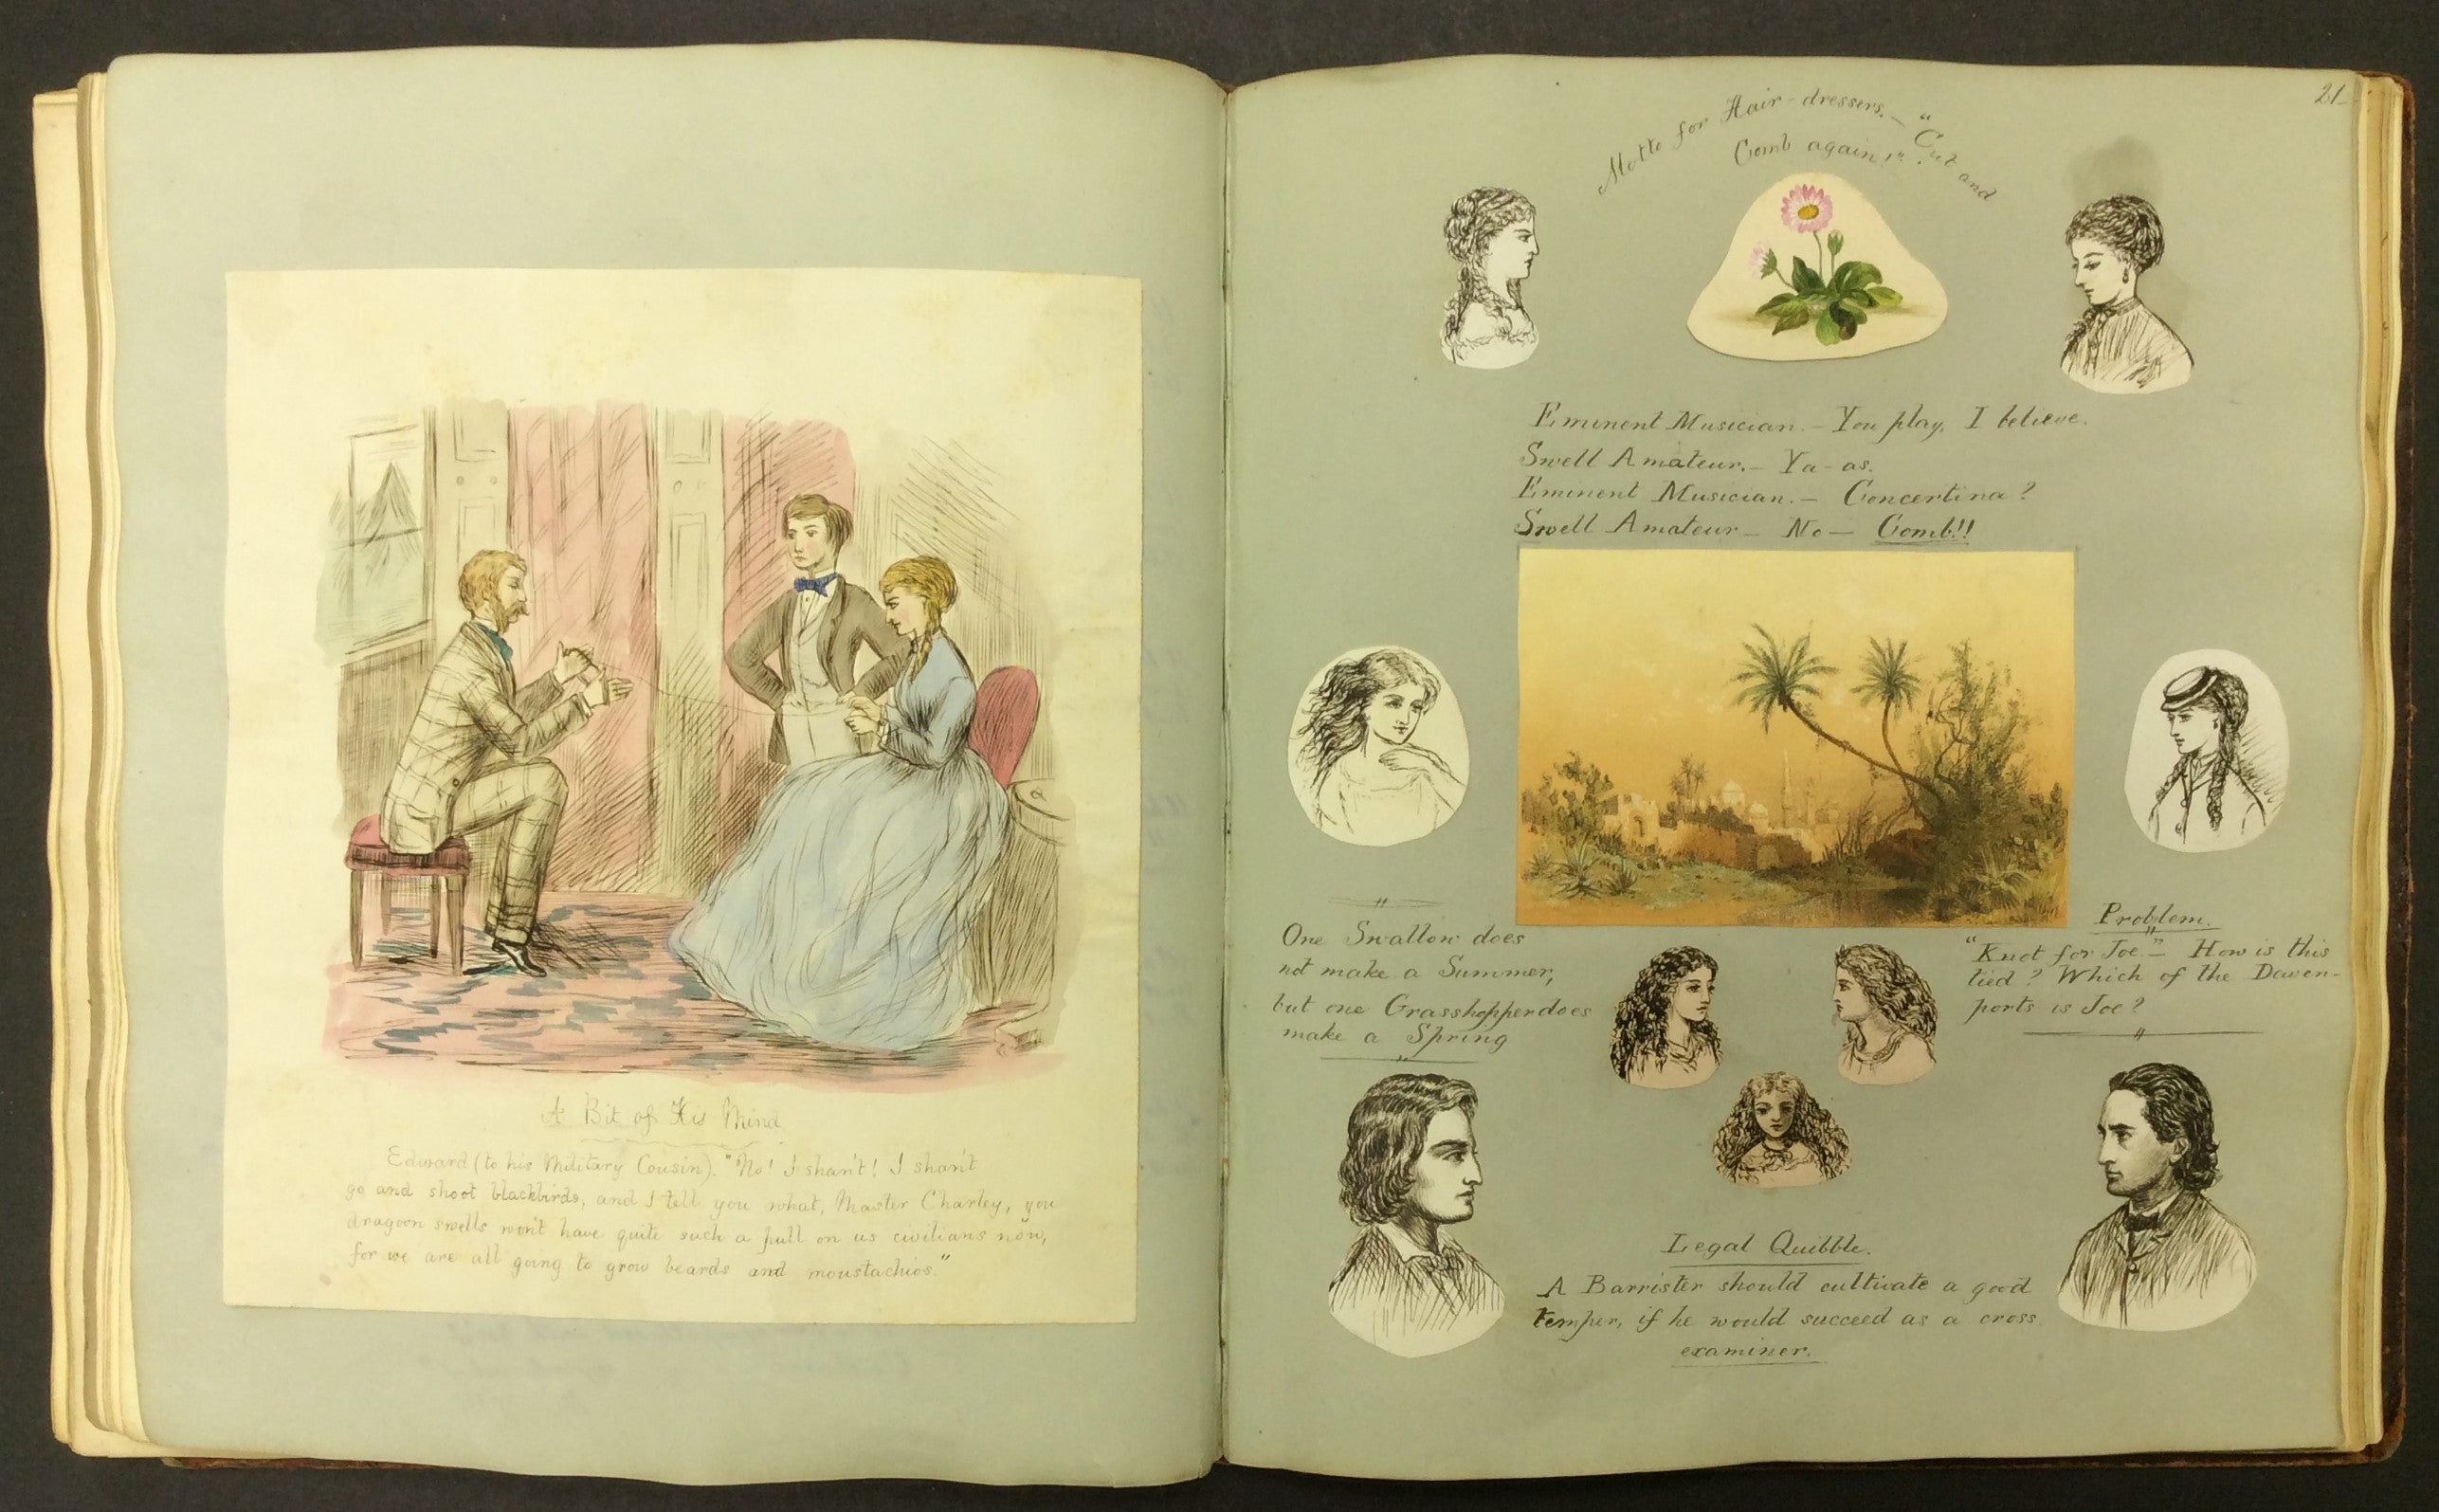 A Bit of His Mind
Edward (to his Military Cousin). "No! I shan't! I shan't
go and shoot blackbirds, and I tell you what, Master Charley, you
dragoon swells won't have quite such a pull on us civilians now,
for we are all going to grow beards and moustachios."
21
Motto for Hair-dressers. — "Cut and
Comb again!"
Eminent Musician. — You play, I believe.
Swell Amateur. — Ya-as.
Eminent Musician. — Concertina?
Swell Amateur — No — Comb!!
One Swallow does
not make a Summer,
but one Grasshopper does
make a Spring
Problem.
"Knot for Joe" — How is this
tied? Which of the Daven-
ports is Joe?
Legal Quibble.
A Barrister should cultivate a good
temper, if he would succeed as a cross
examiner.